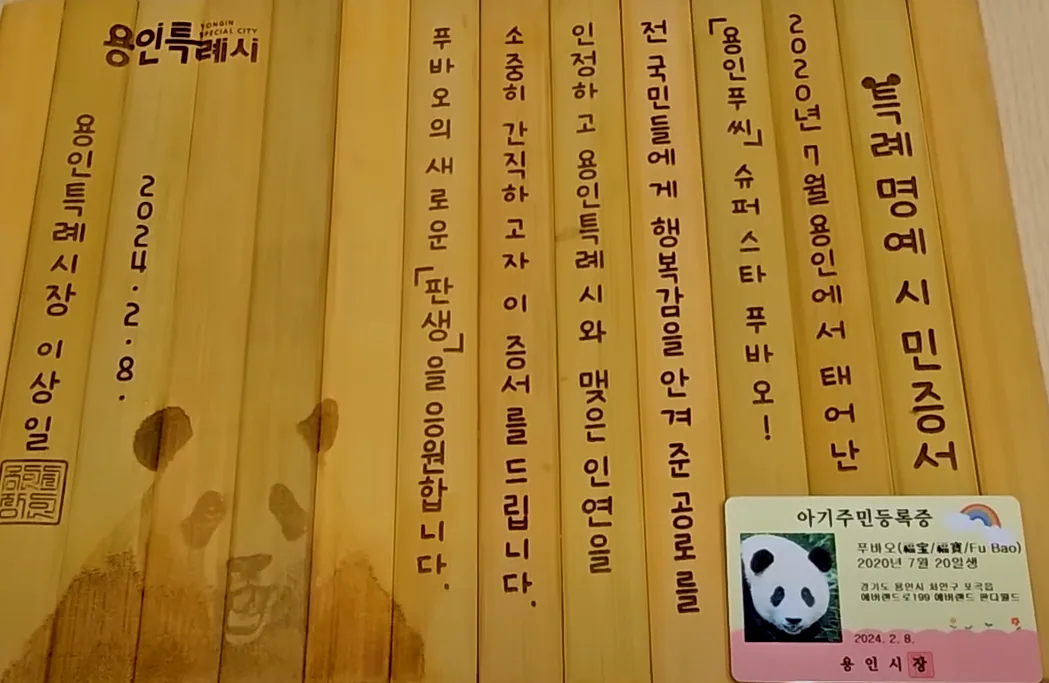 특례명예시민증서
2020년 7월 용인에서 태어난
「용인푸씨」 슈퍼스타 푸바오!
전 국민들에게 행복감을 안겨 준 공로를
인정하고 용인특례시와 맺은 인연을
소중히 간직하고자 이 증서를 드립니다.
푸바오의 새로운 「판생」을 응원합니다.
2024.2.8.
용인특례시장 이상일
용인특례시
YONGIN
SPECIAL CITY
아기주민등록증
푸바오(福宝/福寶/Fu Bao)
2020년 7월 20일생
경기도 용인시 처인구 포곡읍
에버랜드로199 에버랜드 판다월드
2024. 2. 8.
용인시장